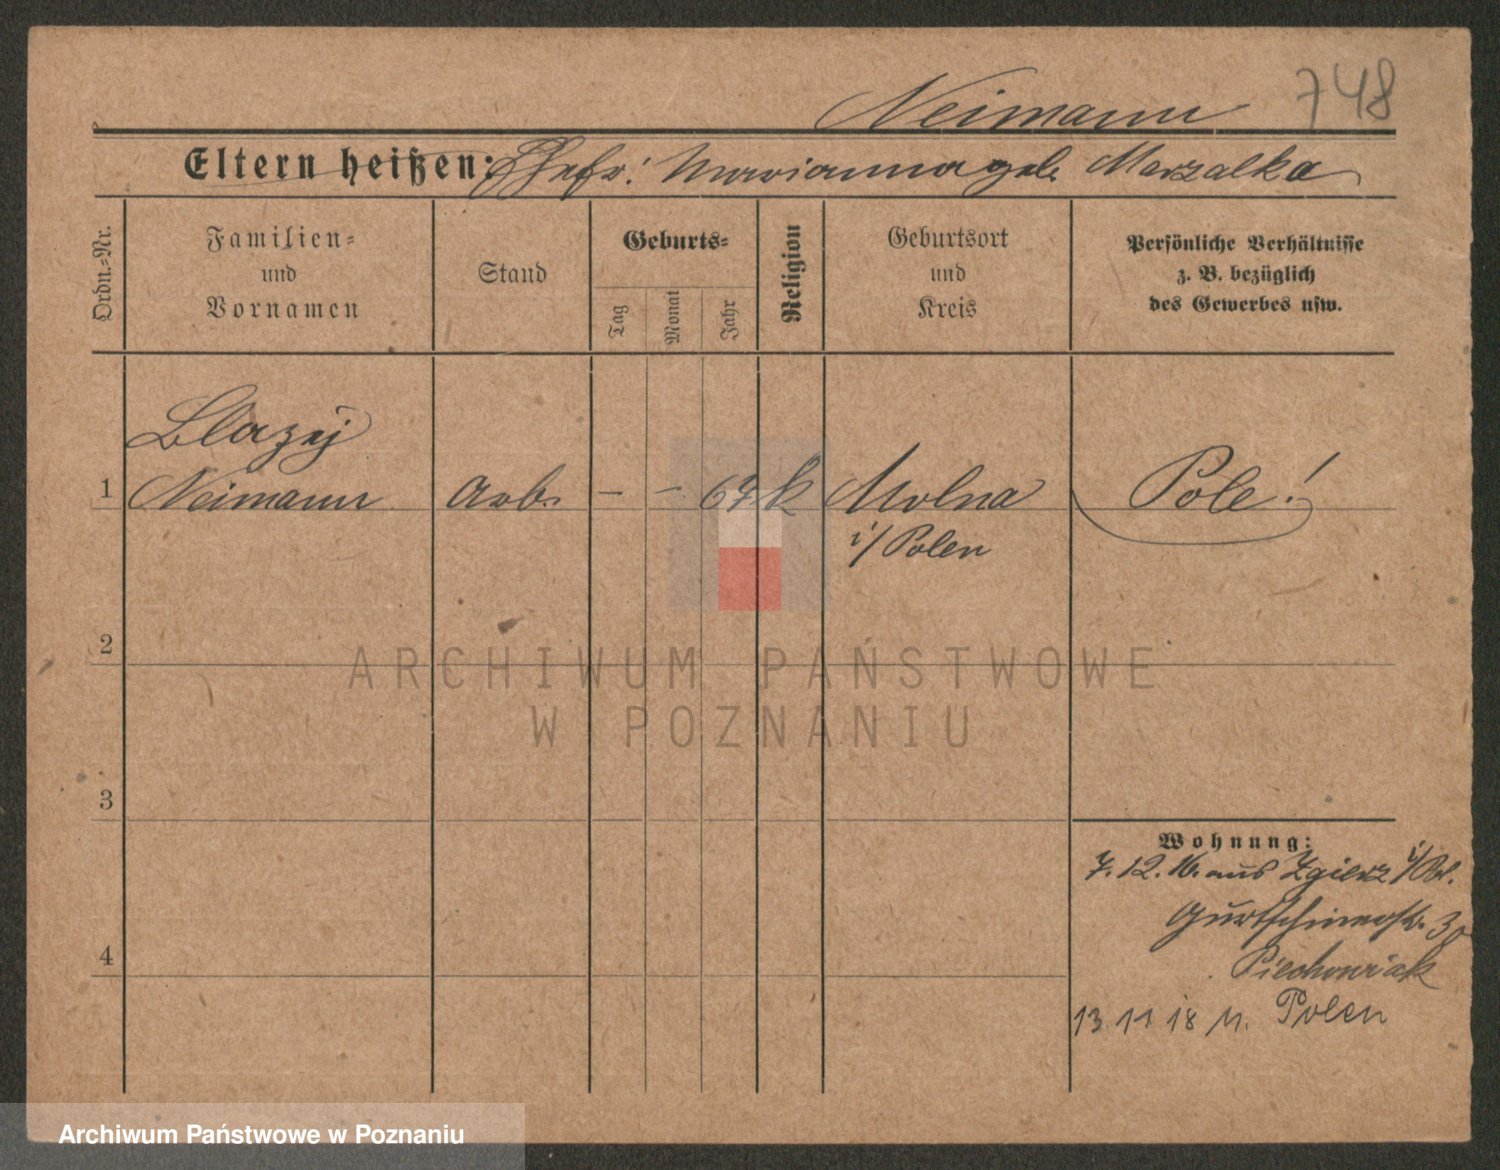 Neimann 748
Eltern heißen: Ehefr: Marianna geb. Marzalka
Ordn.-Nr.
Familien-
und
Vornamen
Stand
Geburts-
Tag
Monat
Jahr
Religion
Geburtsort
und
Kreis
Persönliche Verhältnisse
z. B. bezüglich
des Gewerbes usw.
Blazej
1 Neimann Arb. – – 67 k Molna Pole!
i/Polen
2
3
4
Wohnung:
7.12.16. aus Zgierz i/Pol.
Gurtschinerstr. 30
Piechowiak
13 11 18 n. Polen
ARCHIWUM PAŃSTWOWE
W POZNANIU
Archiwum Państwowe w Poznaniu